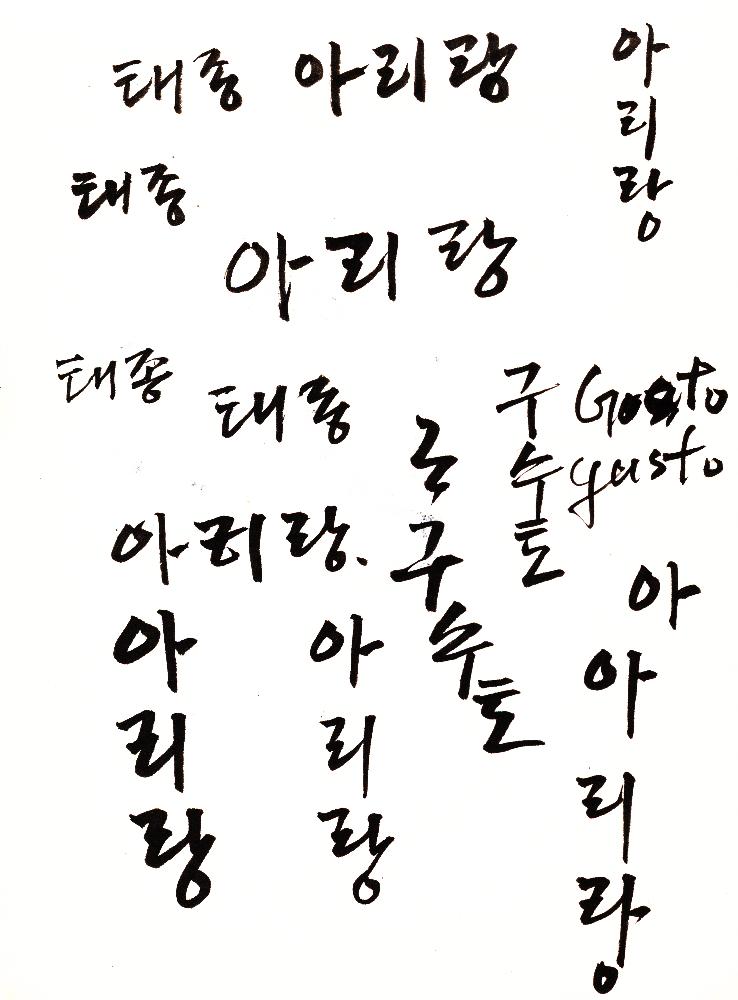 태종 아리랑
아
리
랑
태종
아리랑
태종
태종
구
수
토
Gusto
gusto
구
수
토
아리랑.
아
리
랑
아
리
랑
아
아
리
랑